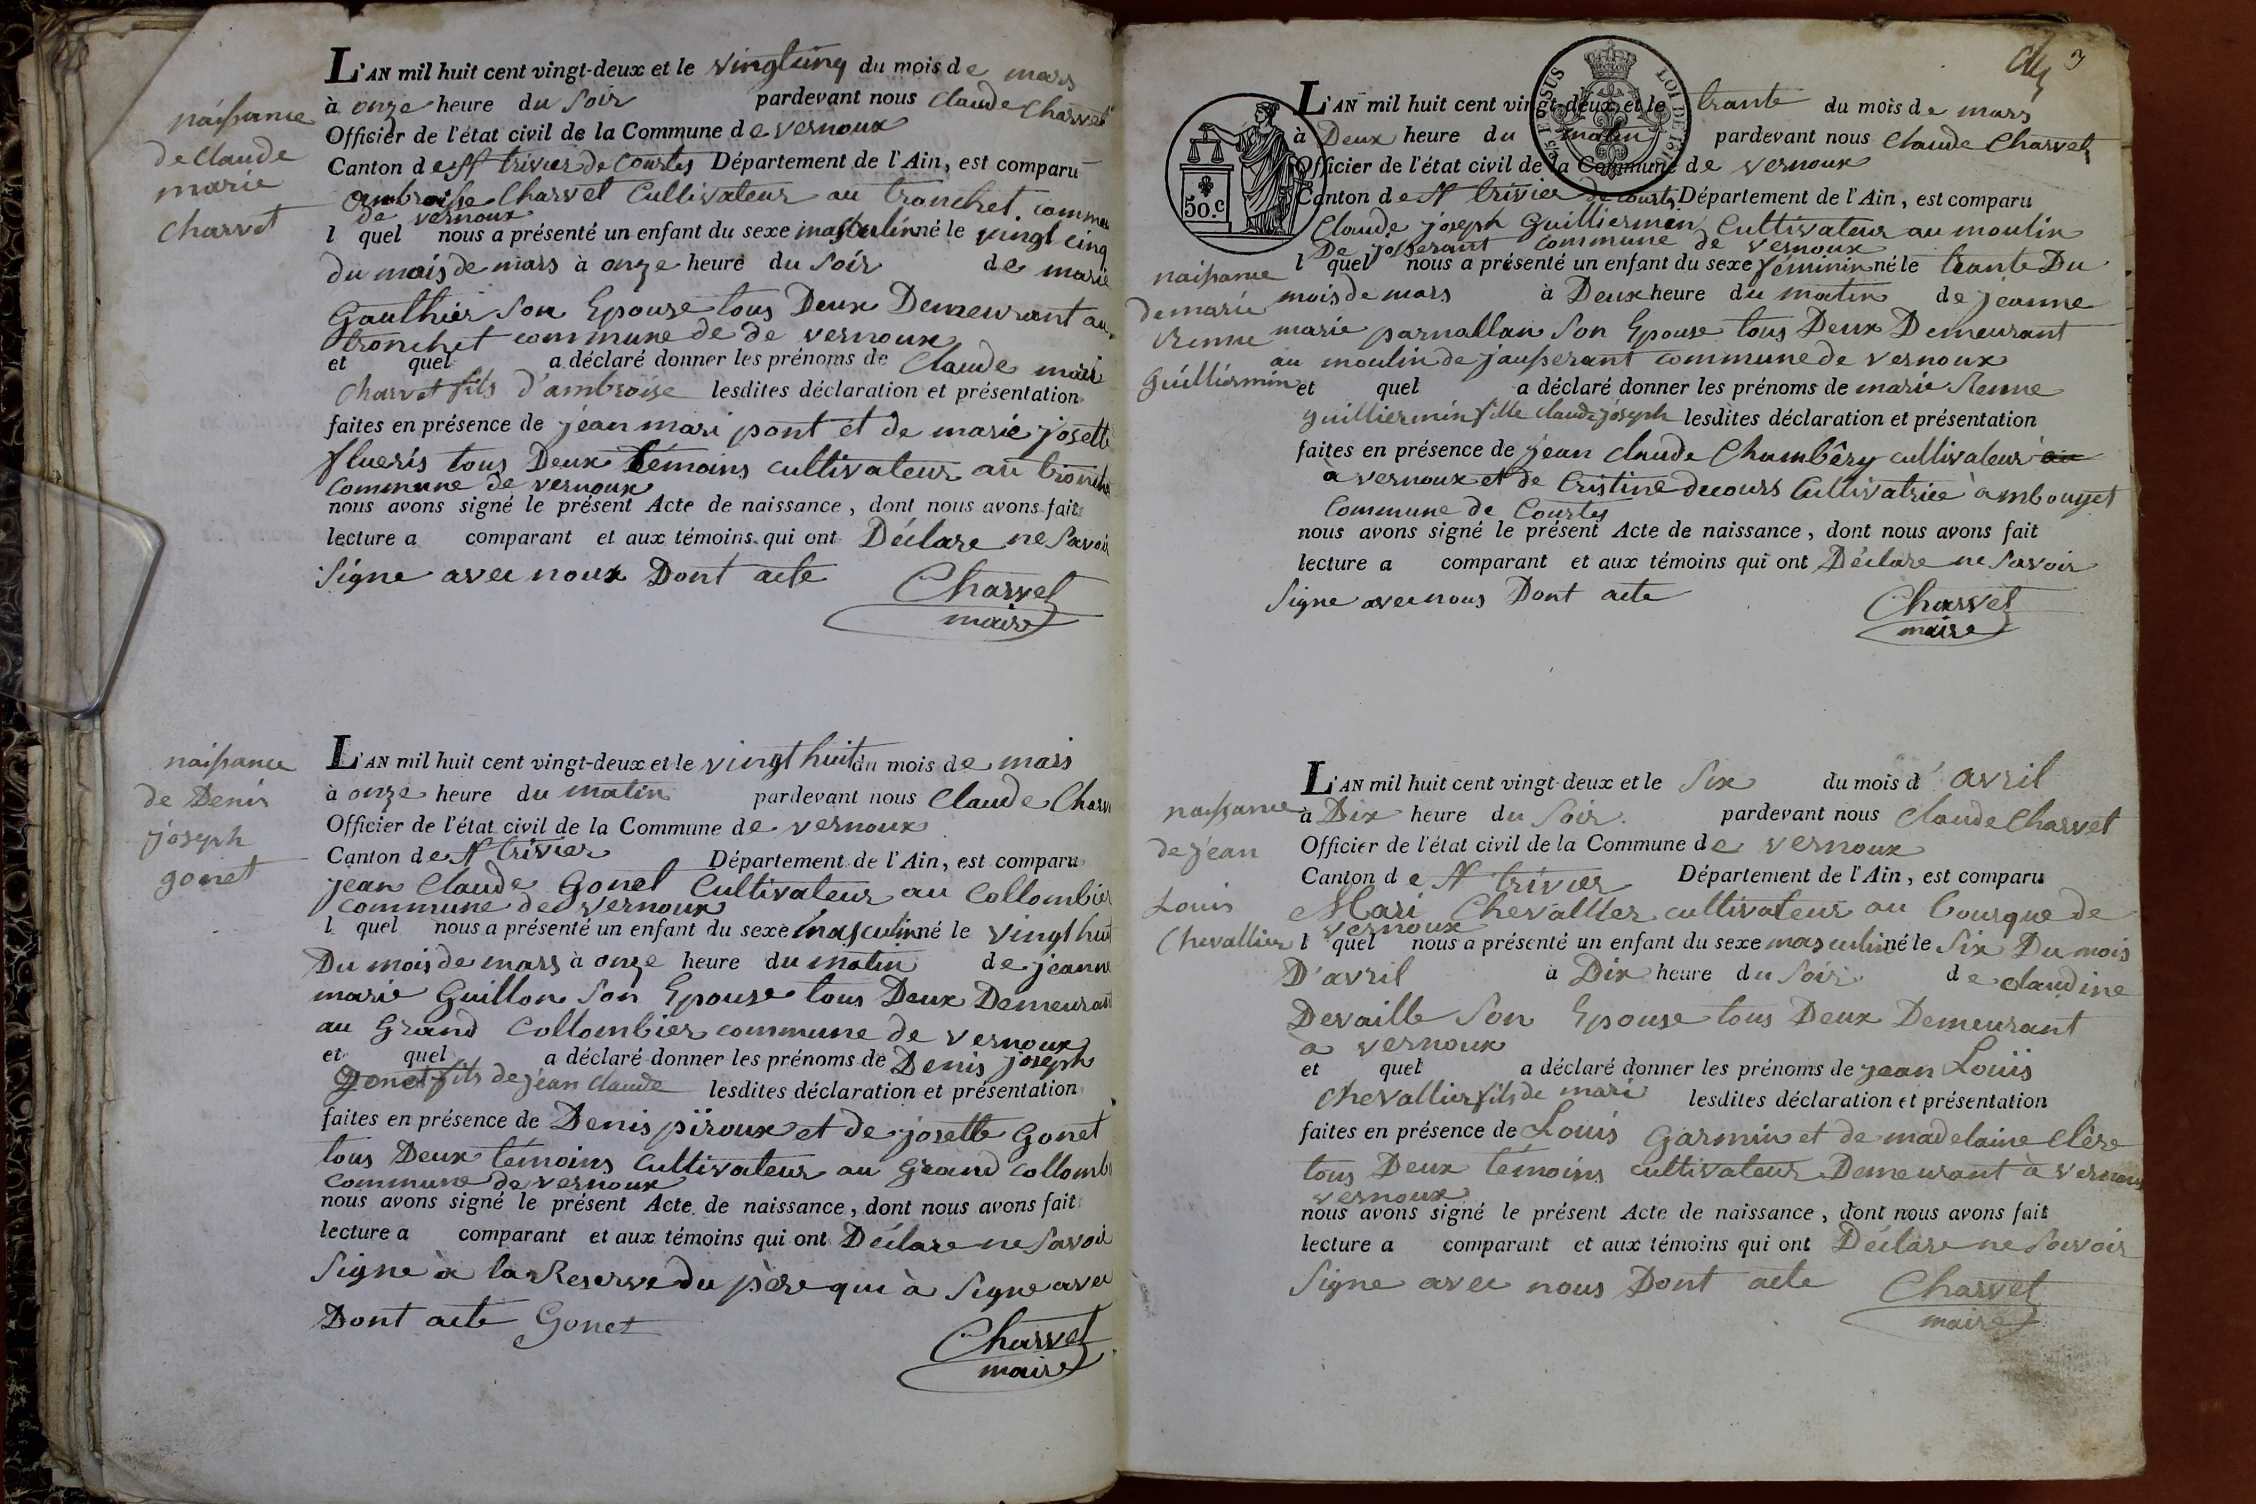 naissance
de claude
marie
charvet
L'AN mil huit cent vingt-deux et le vingtcinq du mois de mars
à onze heure du soir pardevant nous Claude Charvet
Officier de l'état civil de la Commune de vernoux
Canton de St trivier de Courtes Département de l'Ain, est comparu
ambroise Charvet Cultivateur au tronchet commune
de vernoux
l quel nous a présenté un enfant du sexe masculin né le vingt cinq
du mois de mars à onze heure du soir de marie
Gauthier son Epouse tous Deux Demeurant au
tronchet commune de de vernoux
et quel a déclaré donner les prénoms de Claude mari
Charvet fils d'ambroise lesdites déclaration et présentation
faites en présence de jean mari pont et de marie josette
flueris tous Deux témoins cultivateur au tronche
commune de vernoux
nous avons signé le présent Acte de naissance, dont nous avons fait
lecture a comparant et aux témoins qui ont Déclare ne savoir
signe avec noux Dont acte
Charvet
maire
naissance
de Denis
joseph
gonet
L'AN mil huit cent vingt-deux et le vingt huit du mois de mars
à onze heure du matin pardevant nous Claude Charv
Officier de l'état civil de la Commune de vernoux
Canton de St trivier Département de l'Ain, est comparu
jean Claude Gonet Cultivateur au Collombier
commune de vernoux
l quel nous a présenté un enfant du sexe masculin né le vingt huit
Du mois de mars à onze heure du matin de jeanne
marie Guillon son Epouse tous Deux Demeurant
au Grand Collombier commune de vernoux
et quel a déclaré donner les prénoms de Denis joseph
Gonet fils de jean claude lesdites déclaration et présentation
faites en présence de Denis piroux et de josette Gonet
tous Deux témoins cultivateur au Grand collomb
commune de vernoux
nous avons signé le présent Acte de naissance, dont nous avons fait
lecture a comparant et aux témoins qui ont Déclare ne savoir
signe à la Reserve du père qui à signe avec
Dont acte Gonet
Charvet
maire
3
50.c
EN SUS
LOI DE 1816
naissance
de marie
Renne
guilliermin
L'AN mil huit cent vingt-deux et le trante du mois de mars
à Deux heure du matin pardevant nous Claude Charvet
Officier de l'état civil de la Commune de vernoux
Canton de St trivier de courtes Département de l'Ain, est comparu
Claude joseph Guilliermen Cultivateur au moulin
De josserant commune de vernoux
l quel nous a présenté un enfant du sexe féminin né le trante Du
mois de mars à Deux heure du matin de jeanne
marie parnallan son Epouse tous Deux Demeurant
au moulin de jausserant commune de vernoux
et quel a déclaré donner les prénoms de marie Renne
guilliermin fille claude joseph lesdites déclaration et présentation
faites en présence de jean claude Chambêry cultivateur au
à vernoux et de Cristine decours Cultivatrice à mbouget
commune de Courtes
nous avons signé le présent Acte de naissance, dont nous avons fait
lecture a comparant et aux témoins qui ont Déclare ne savoir
signe avec nous Dont acte
Charvet
maire
naissance
de jean
Louis
Chevallier
L'AN mil huit cent vingt-deux et le six du mois d'avril
à Dix heure du soir pardevant nous Claude Charvet
Officier de l'état civil de la Commune de vernoux
Canton de St trivier Département de l'Ain, est comparu
Mari Chevallier cultivateur au bourque de
vernoux
l quel nous a présenté un enfant du sexe masculin né le six Du mois
D'avril à Dix heure du soir de claudine
Devaille son Epouse tous Deux Demeurant
à vernoux
et quel a déclaré donner les prénoms de jean Louis
Chevallier fils de mari lesdites déclaration et présentation
faites en présence de Louis Garmin et de madelaine Clêre
tous Deux témoins cultivateur Demeurant à vernoux
vernoux
nous avons signé le présent Acte de naissance, dont nous avons fait
lecture a comparant et aux témoins qui ont Déclare ne savoir
signe avec nous Dont acte
Charvet
maire